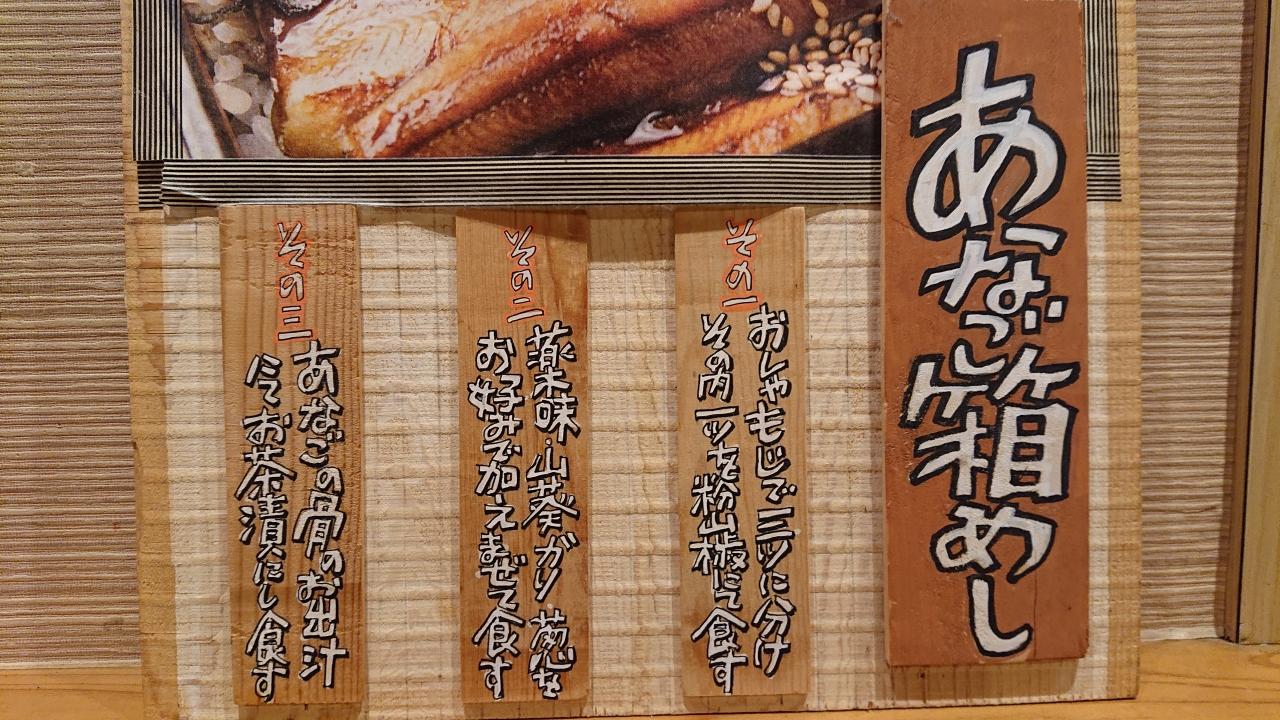 あなご箱めし
その一
おしゃもじで三ツに分け
その内一ツを粉山椒にて食す
その二
薬味・山葵ガリ葱を
お好みで加えまぜて食す
その三
あなごの骨のお出汁
にてお茶漬にし食す